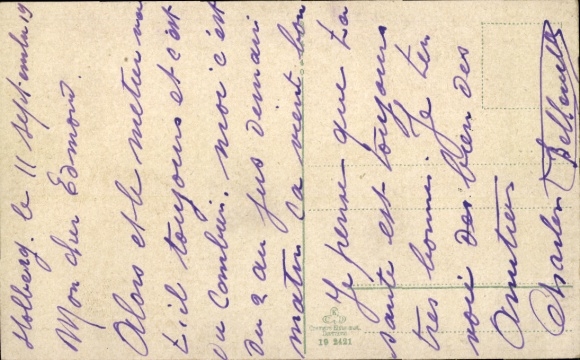 Stolberg. le 11 septembre 19
Mon cher Edmond.
Alors et le metier va
t'il toujours et c'est
du combien. moi c'est
du 2 au jus demain
matin ça vient bon
Je pense que ta
santé est toujours
très bonne. Je t'en
voie des bien des
amitiés
Charles
19 2421